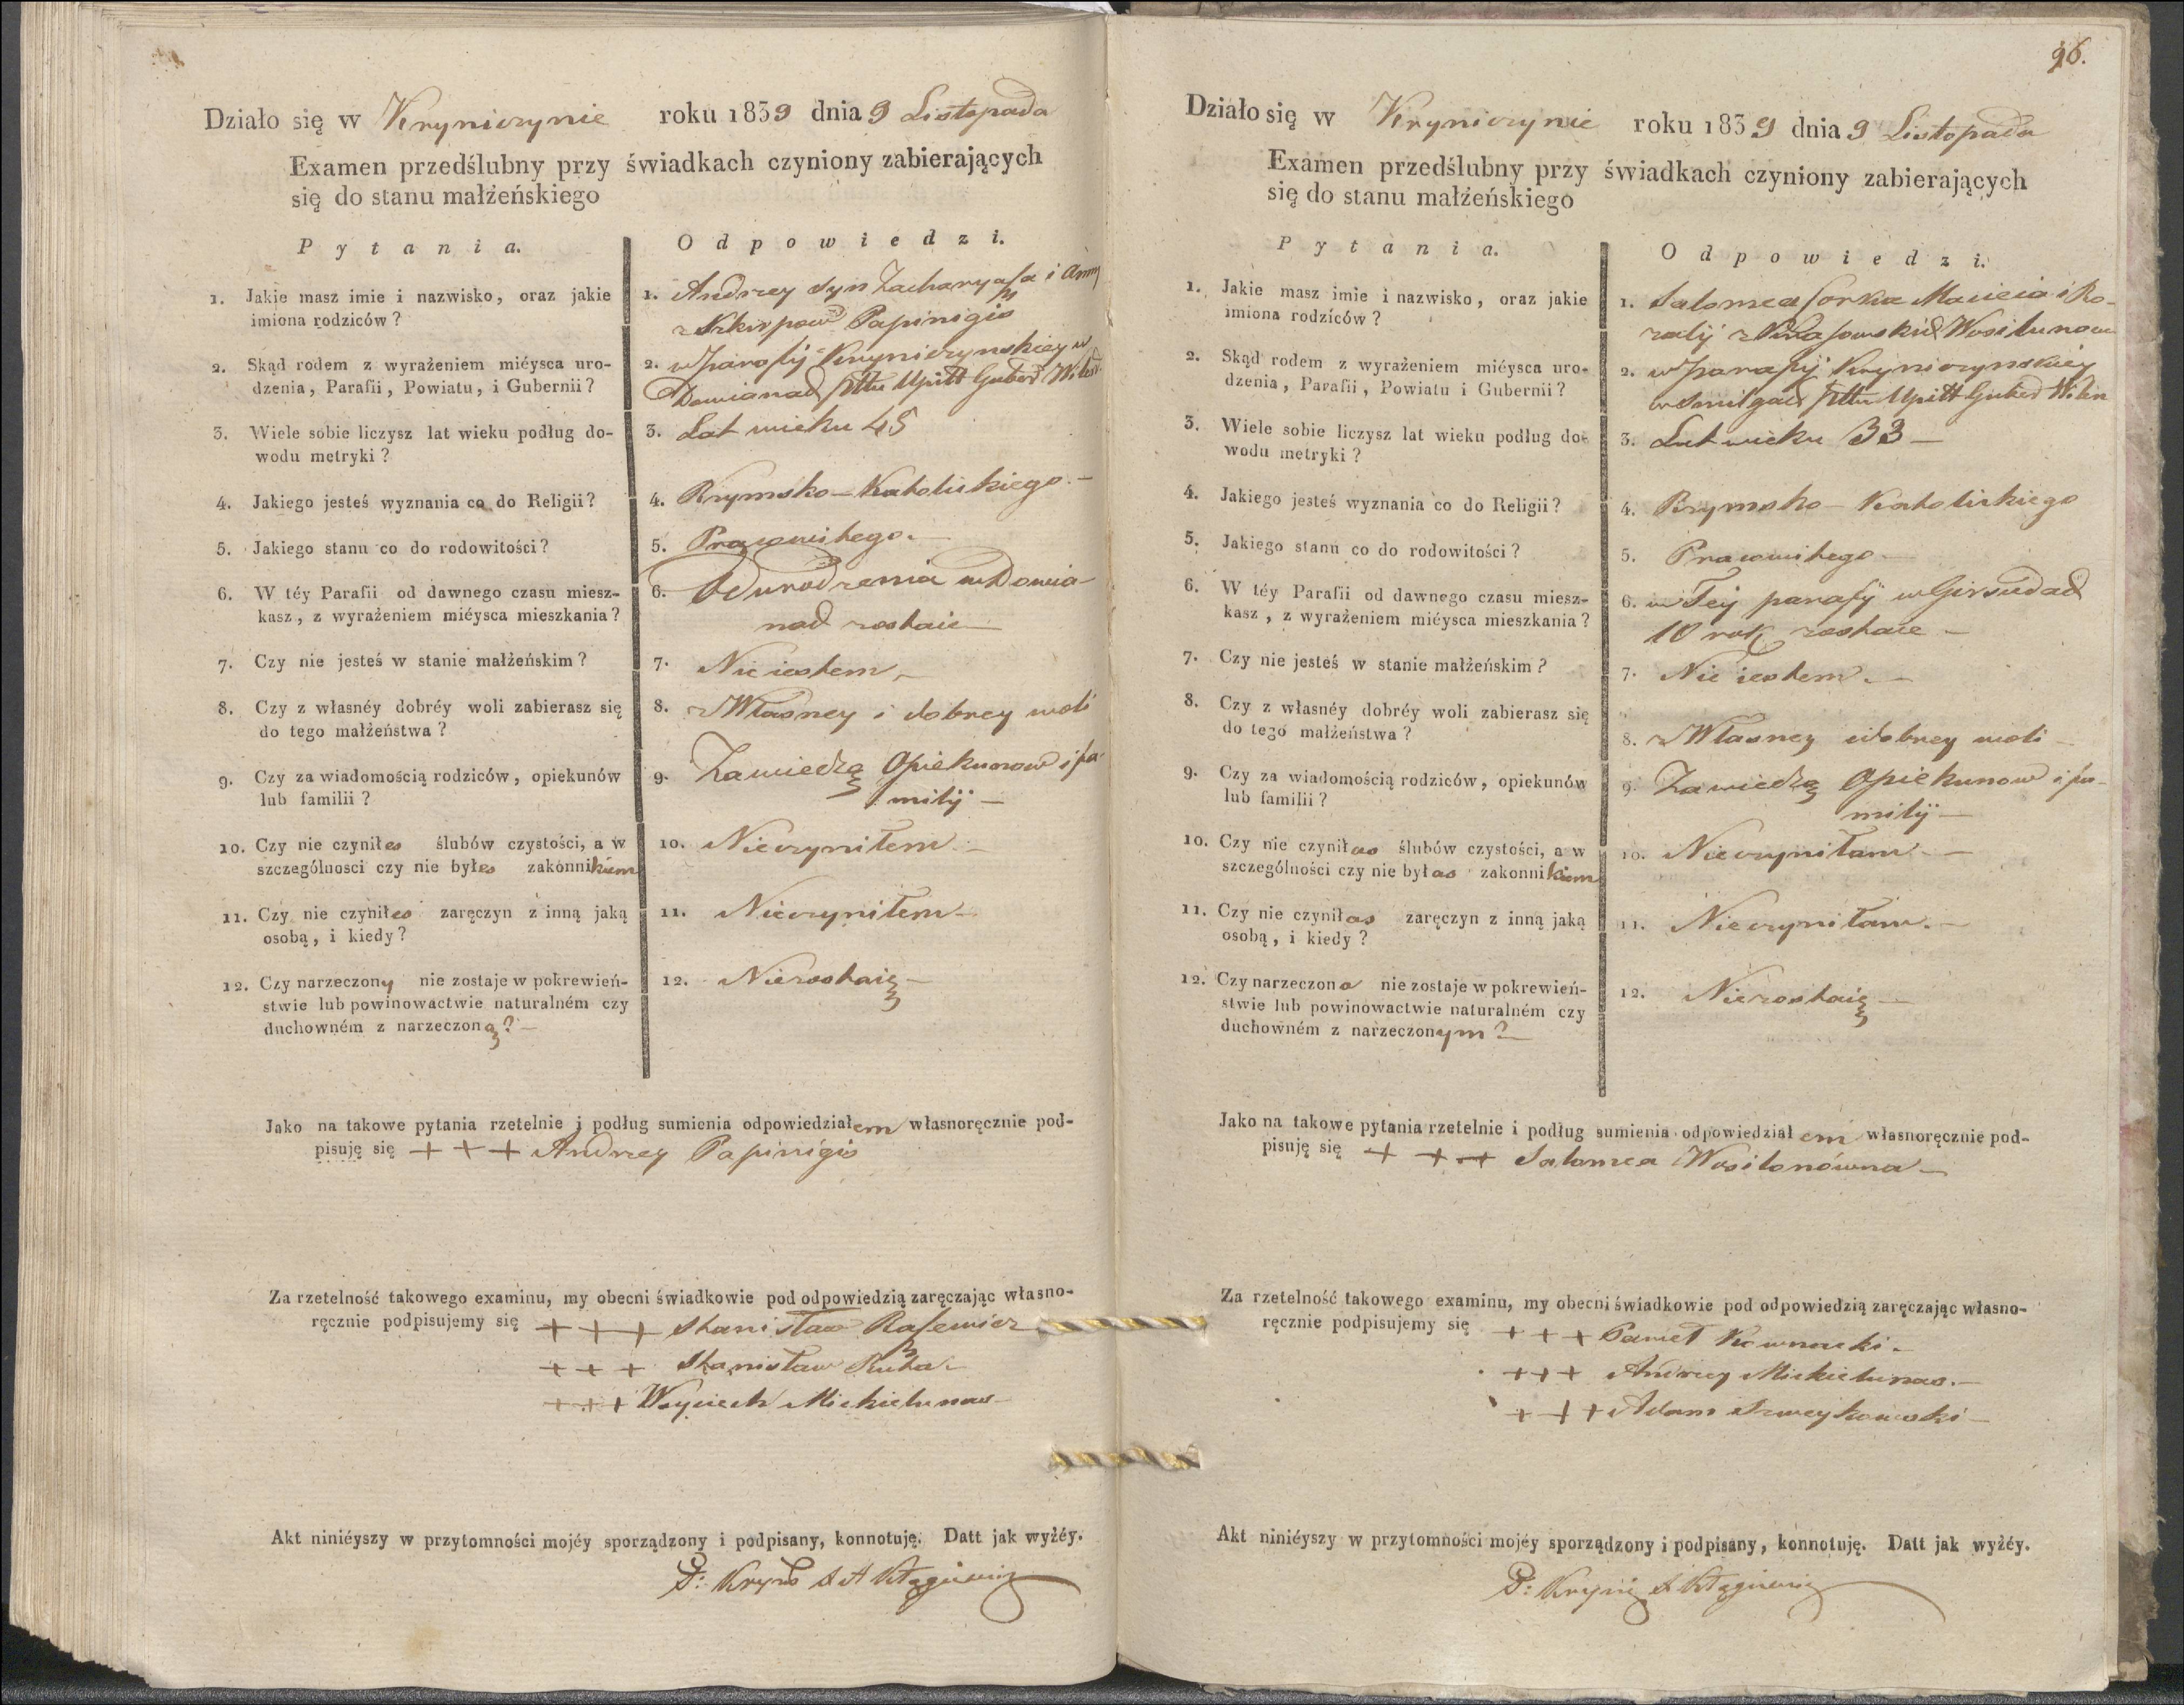 Działo się w Kryniczynie roku 1839 dnia 9 Listopada
Examen przedślubny przy świadkach czyniony zabierających
się do stanu małżeńskiego
Pytania.
Odpowiedzi.
1. Jakie masz imie i nazwisko, oraz jakie
imiona rodziców?
1. Andrzey syn Zacharyasza i Anny
Papinigis
2. Skąd rodem z wyrażeniem mieysca uro-
dzenia, Parafii, Powiatu, i Gubernii?
2. w parafij Kryniczynskiey w
Dowianach Pttu Upitt Guber Wileń
3. Wiele sobie liczysz lat wieku podług do-
wodu metryki?
3. Lat wieku 45
4. Jakiego jesteś wyznania co do Religii?
4. Rzymsko-Katolickiego. –
5. Jakiego stanu co do rodowitości?
5. Pracowitego. –
6. W téy Parafii od dawnego czasu miesz-
kasz, z wyrażeniem miéysca mieszkania?
6. Od urodzenia w Dowia-
nach zostaie –
7. Czy nie jesteś w stanie małżeńskim?
7. Nie iestem –
8. Czy z własnéy dobréy woli zabierasz się
do tego małżeństwa?
8. z Własney i dobrey woli
9. Czy za wiadomością rodziców, opiekunów
lub familii?
9. Za wiedzą Opiekunow i fa-
milij –
10. Czy nie czyniłes ślubów czystości, a w
szczególnosci czy nie byłes zakonnikiem
10. Nieczyniłem –
11. Czy nie czyniłes zaręczyn z inną jaką
osobą, i kiedy?
11. Nieczyniłem –
12. Czy narzeczony nie zostaje w pokrewień-
stwie lub powinowactwie naturalném czy
duchowném z narzeczoną? –
12. Niezostaię –
Jako na takowe pytania rzetelnie i podług sumienia odpowiedziałem własnoręcznie pod-
pisuję się + + + Andrzey Papinigis
Za rzetelność takowego examinu, my obecni świadkowie pod odpowiedzią zaręczając własno-
ręcznie podpisujemy się + + + Stanisław
+ + + Stanisław
+ + + Woyciech Mickielunas –
Akt niniéyszy w przytomności mojéy sporządzony i podpisany, konnotuję. Datt jak wyżéy.
96.
Działo się w Kryniczynie roku 1839 dnia 9 Listopada
Examen przedślubny przy świadkach czyniony zabierających
się do stanu małżeńskiego
Pytania.
Odpowiedzi.
1. Jakie masz imie i nazwisko, oraz jakie
imiona rodziców?
1. Salomea Corka Macieia i Ro-
zalij
2. Skąd rodem z wyrażeniem miéysca uro-
dzenia, Parafii, Powiatu i Gubernii?
2. w parafij Kryniczynskiey
w Smilgach Pttu Upitt Guber Wileń
3. Wiele sobie liczysz lat wieku podług do-
wodu metryki?
3. Lat wieku 33 –
4. Jakiego jesteś wyznania co do Religii?
4. Rzymsko – Katolickiego
5. Jakiego stanu co do rodowitości?
5. Pracowitego –
6. W téy Parafii od dawnego czasu miesz-
kasz, z wyrażeniem miéysca mieszkania?
6. w Tey parafij w Girsudach
10 rok zostaie –
7. Czy nie jesteś w stanie małżeńskim?
7. Nie iestem. –
8. Czy z własnéy dobréy woli zabierasz się
do tego małżeństwa?
8. z Własney i dobrey woli –
9. Czy za wiadomością rodziców, opiekunów
lub familii?
9. Za wiedzą Opiekunow i fa-
milij –
10. Czy nie czyniłas ślubów czystości, a w
szczególności czy nie byłas zakonnikiem
10. Nieczyniłam –
11. Czy nie czyniłas zaręczyn z inną jaką
osobą, i kiedy?
11. Nieczyniłam. –
12. Czy narzeczona nie zostaje w pokrewień-
stwie lub powinowactwie naturalném czy
duchowném z narzeczonym? –
12. Niezostaię –
Jako na takowe pytania rzetelnie i podług sumienia odpowiedziałem własnoręcznie pod-
pisuję się + + + Salomea Wosilonówna –
Za rzetelność takowego examinu, my obecni świadkowie pod odpowiedzią zaręczając własno-
ręcznie podpisujemy się + + + Paweł Kownacki. –
+ + + Andrzey Mickielunas. –
+ + + Adam Szweykowski –
Akt niniéyszy w przytomności mojéy sporządzony i podpisany, konnotuję. Datt jak wyżéy.